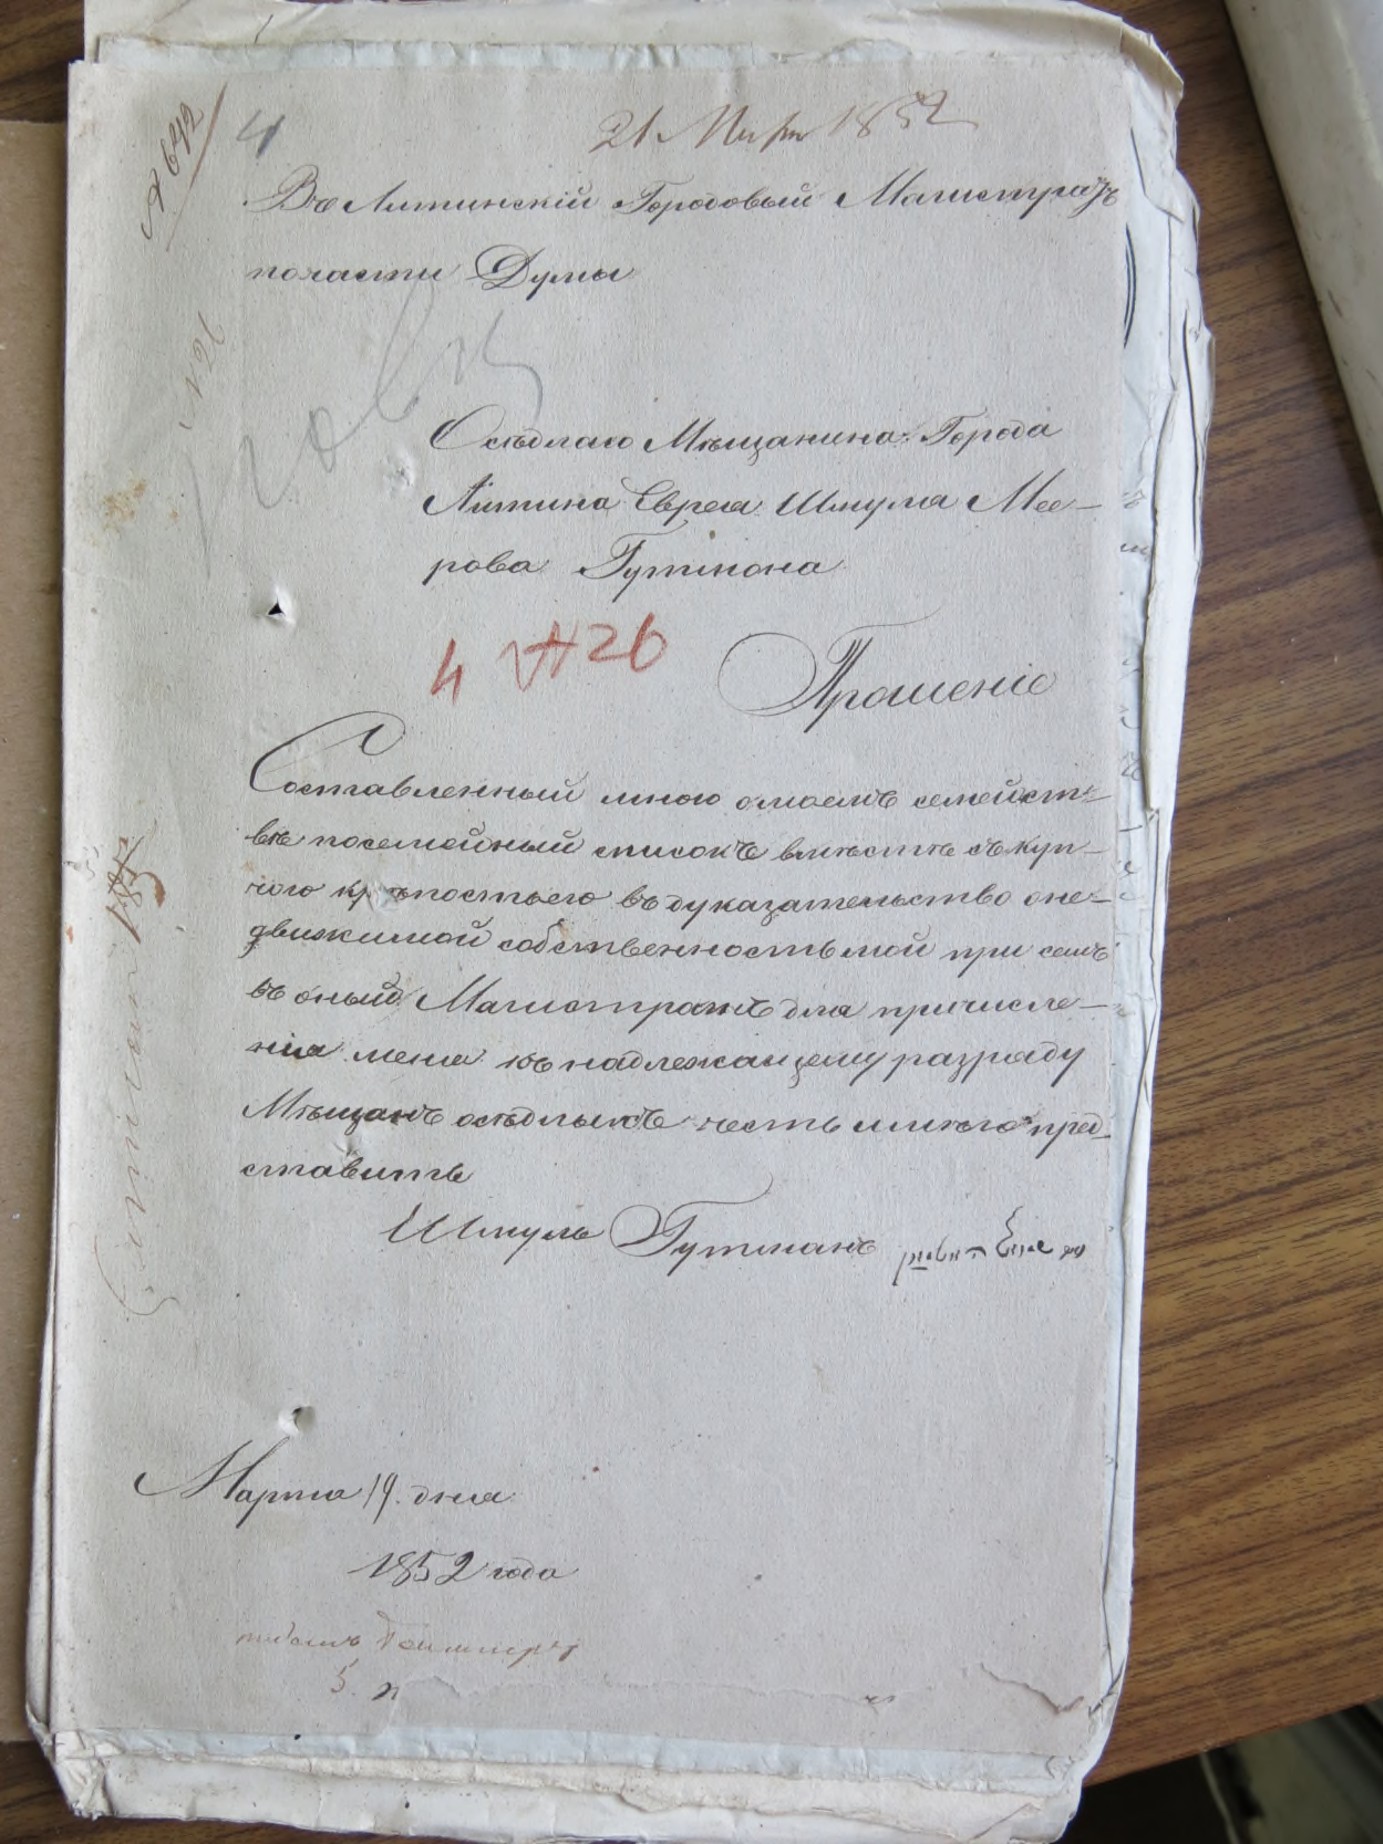 № 642
4
21 Мар 1852
Въ Литинскій Городовый Магистратъ
почасти Думы
Осѣдлаго Мѣщанина Города
Литина Еврея Шмуля Мее-
рова Гутмона
4 №26
Прошеніе
Составленный мною омоемъ семейст-
вѣ посемейный списокъ вмѣстѣ съ куп-
чою крѣпостьею въ дуказательство оне-
движимой собственность мой при семъ
въ оный Магистратъ для причисле-
нія меня къ надлежащему разряду
Мѣщанъ осѣдлыхъ честь имѣю пред-
ставить
Шмуль Гутманъ
Марта 19. дня
1852 года